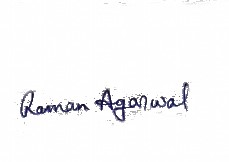 Raman Agarwal